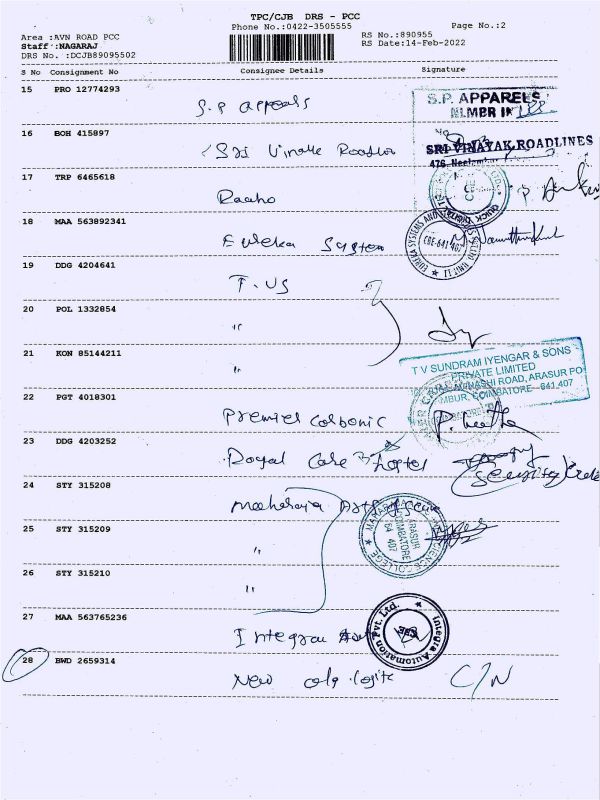 TPC/CJB DRS - PCC
Phone No.:0422-3505555
Page No.:2
Area :AVN ROAD PCC
RS No.:890955
Staff :NAGARAJ
RS Date:14-Feb-2022
DRS No. :DCJB89095502
S No Consignment No Consignee Details Signature
15 PRO 12774293
S.P Appeals
S.P. APPARELS
16 BOH 415897
Sri Vinak Roadlin
SRI VINAYAK ROADLINES
476,
17 TRP 6465618
Raaho
18 MAA 563892341
Eureka System
EUREKA SYSTEMS AND
CBE-641 407
19 DDG 4204641
T.VS
20 POL 1332854
"
21 KON 85144211
"
T V SUNDRAM IYENGAR & SONS
PRIVATE LIMITED
ROAD, ARASUR PO
COIMBATORE 641 407
22 PGT 4018301
Premier Carbonic
23 DDG 4203252
Royal Care Hospital
24 STY 315208
Maharaja Arts
25 STY 315209
"
ARASUR
COIMBATORE
SCIENCE COLLEGE
26 STY 315210
"
27 MAA 563765236
Integra
Integra Automation Pvt. Ltd.
CBE
28 BWD 2659314
New
C/N